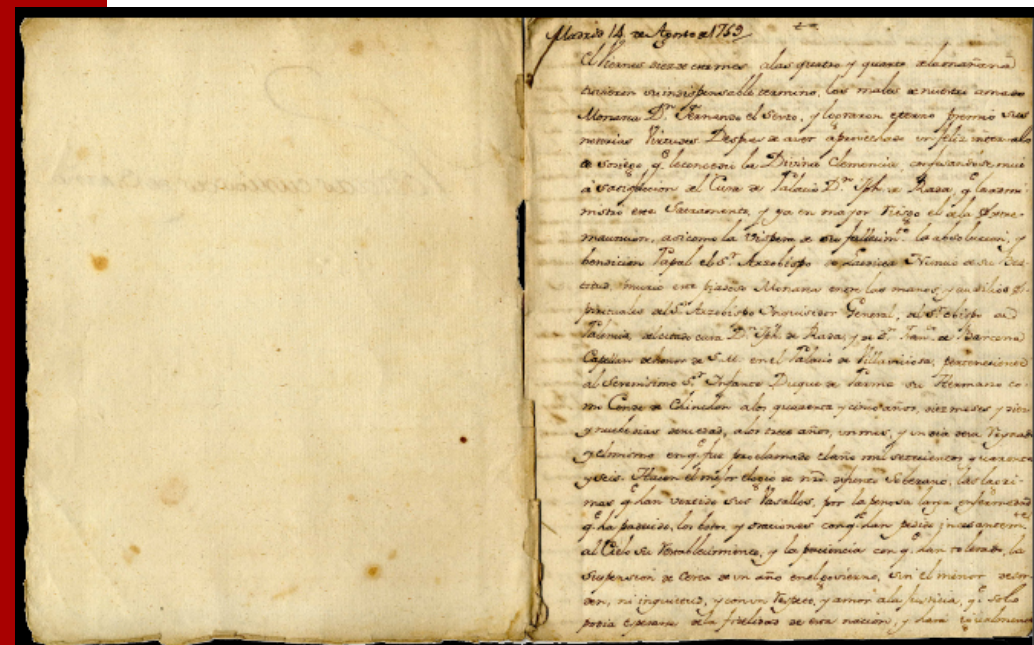 Madrid 14 de Agosto de 1759
El Viernes diez de este mes a las quatro y quarto de la mañana
tuvieron su indispensable termino, los males de nuestro amado
Monarca Dn. Fernando el Sexto, y lograron eterno premio sus
notorias Virtudes. Despues de aver aprovechado un feliz intervalo
de sosiego qe. le concedio la Divina Clemencia, confesandose
a satisfaccion del Cura de Palacio Dn. Jph. de Rada, qe. le admi
nistró este Sacramento, y ya en mayor riesgo el de la Extre
mauncion, asi como la vispera de su fallecimto. la absolucion, y
bendicion Papal el Sr. Arzobispo de Nuncio de su Bea
titud, murio este piadoso Monarca entre las manos, y auxilios Es
pirituales del Sr. Arzobispo Inquisidor General, del Sr. obispo de
Palencia, del citado cura Dn. Jph. de Rada, y de Dn. Franco. de Barcena
Capellan de honor de S.M. en el Palacio de Villaviciosa, perteneciente
al Serenisimo Sr. Infante Duque de Parma su Hermano co
mo Conde de Chinchon a los quarenta y cinco años, diez meses y diez
y nueve dias de su edad, a los trece años, un mes, y un dia de su Reynado
y el mismo en qe. fue proclamado el año mil setecientos quarenta
y seis. Hacen el mejor elogio de nro. difunto Soberano, las lagri
mas qe. han vertido sus Vasallos, por la penosa larga enfermedad
qe. ha padecido, los votos y oraciones con qe. han pedido incesantemte.
al Cielo su restablecimiento, y la paciencia con qe. han tolerado, la
suspension de cerca de un año en el govierno, sin el menor desor
den, ni inquietud, y con un respeto, y amor a la Justicia, qe. solo
podia esperarse de la fidelidad de esta nacion, y hará igualmente